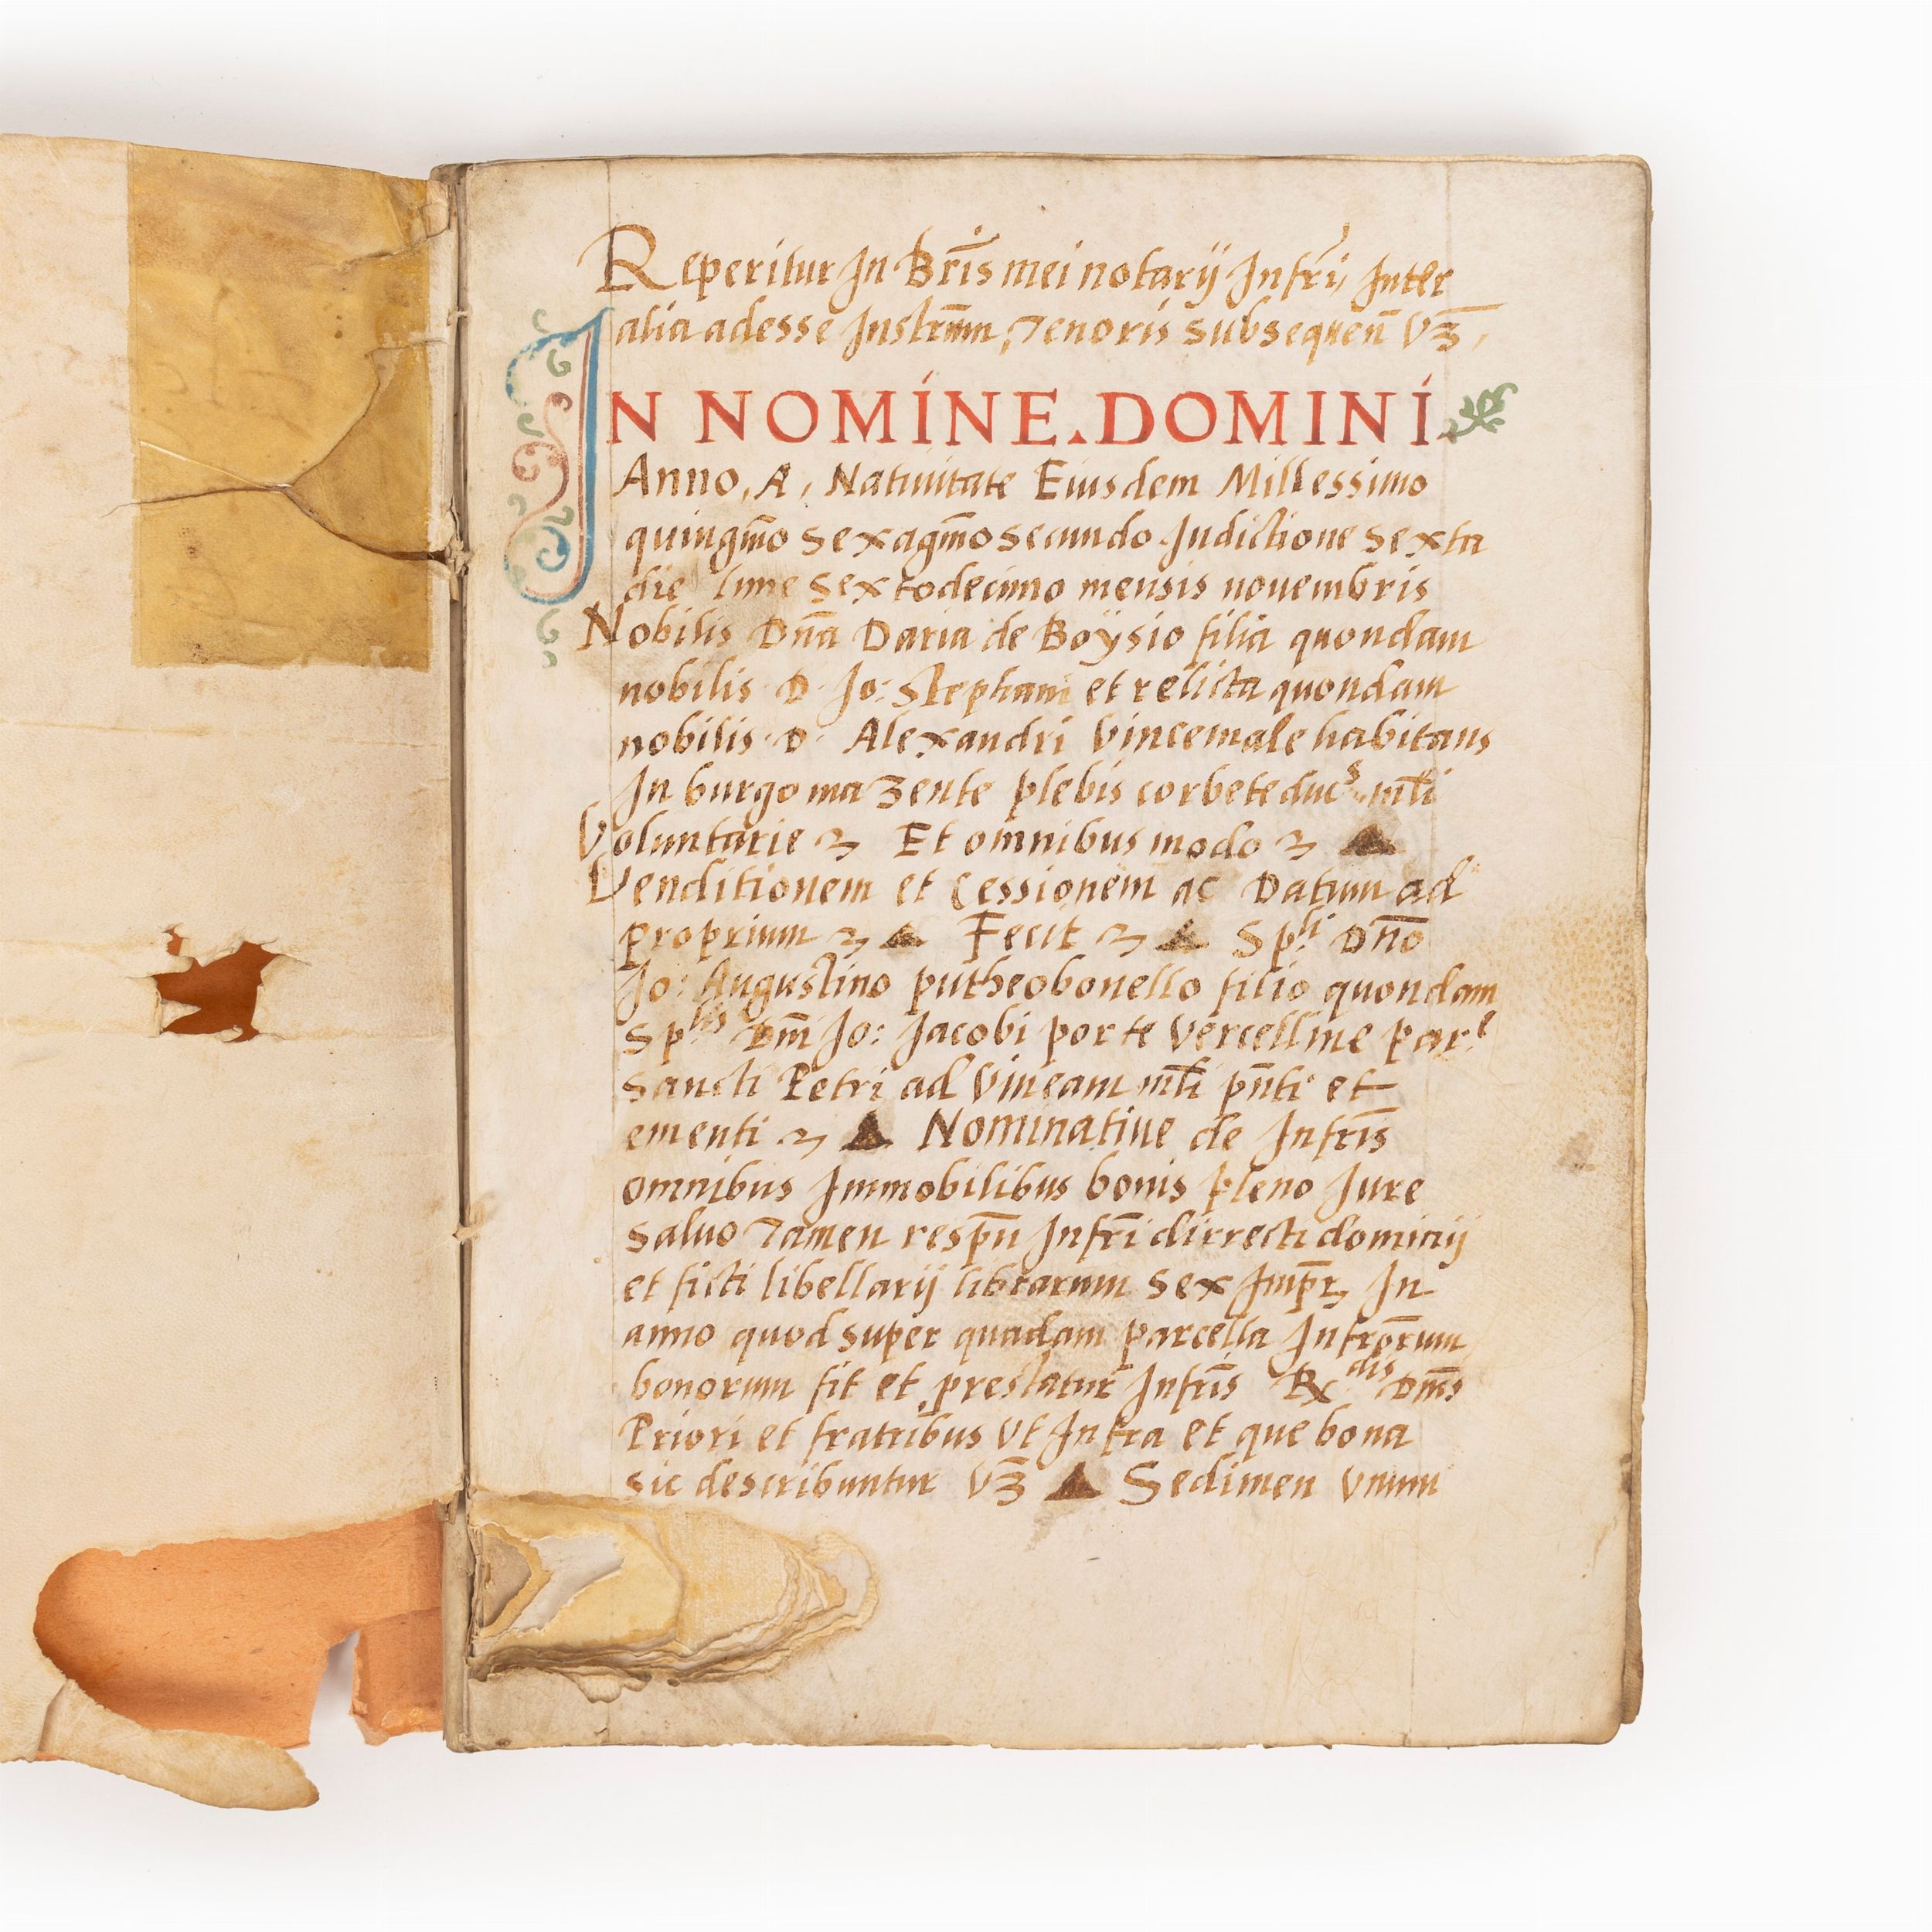 Reperitur In Br̄is mei notarij Infr̄i, Inter
alia adesse Instrūm, Tenoris subsequen̄ Vʒ̄,
IN NOMINE. DOMINI.
Anno, A, Natiuitate Eiusdem Millessimo
quingm̄o sexagm̄o secundo Indictione sexta
die lune sextodecimo mensis nouembris
Nobilis Dn̄a Daria de Boÿsio filia quondam
nobilis D. Jo: Stephani et relicta quondam
nobilis D. Alexandri Vincemale habitans
In burgo maʒente plebis corbete ducˢ ml̄i
Voluntarie ʒ Et omnibus modo ʒ
Venditionem et Cessionem ac Datum ad
proprium ʒ Fecit ʒ Sp.ˡⁱ Dn̄o
Jo: Augustino putheobonello filio quondam
Sp.ˡⁱˢ Dn̄i Jo: Jacobi porte Vercelline par.ᵉ
Sancti Petri ad Vineam ml̄i pn̄ti et
ementi ʒ Nominatiue de Infr̄is
omnibus Immobilibus bonis pleno Iure
saluo Tamen resp̄u Infr̄i dirrecti dominij
et ficti libellarij librarum sex Imp̄r, In
anno quod super quadam parcella Infr̄orum
bonorum fit et prestatur Infr̄is Rᵈⁱˢ Dn̄is
Priori et fratribus Vt Infra et que bona
sic describuntur Vʒ̄ Sedimen Vnum